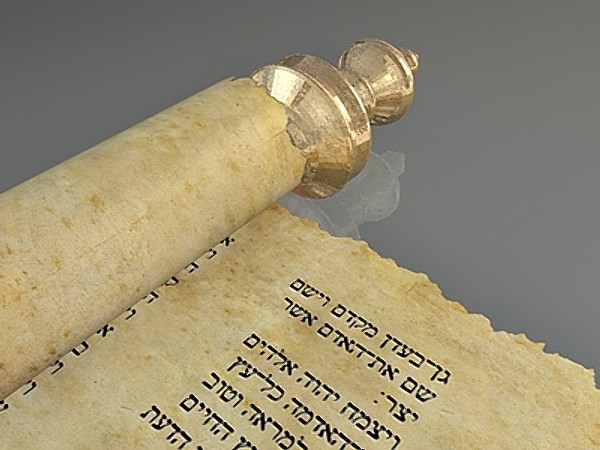 גן־בעדן מקדם וישם
שם את־האדם אשר
יצר׃
ויצמח יהוה אלהים
האדמה כל־עץ
למראה וטוב
החיים
הדעת